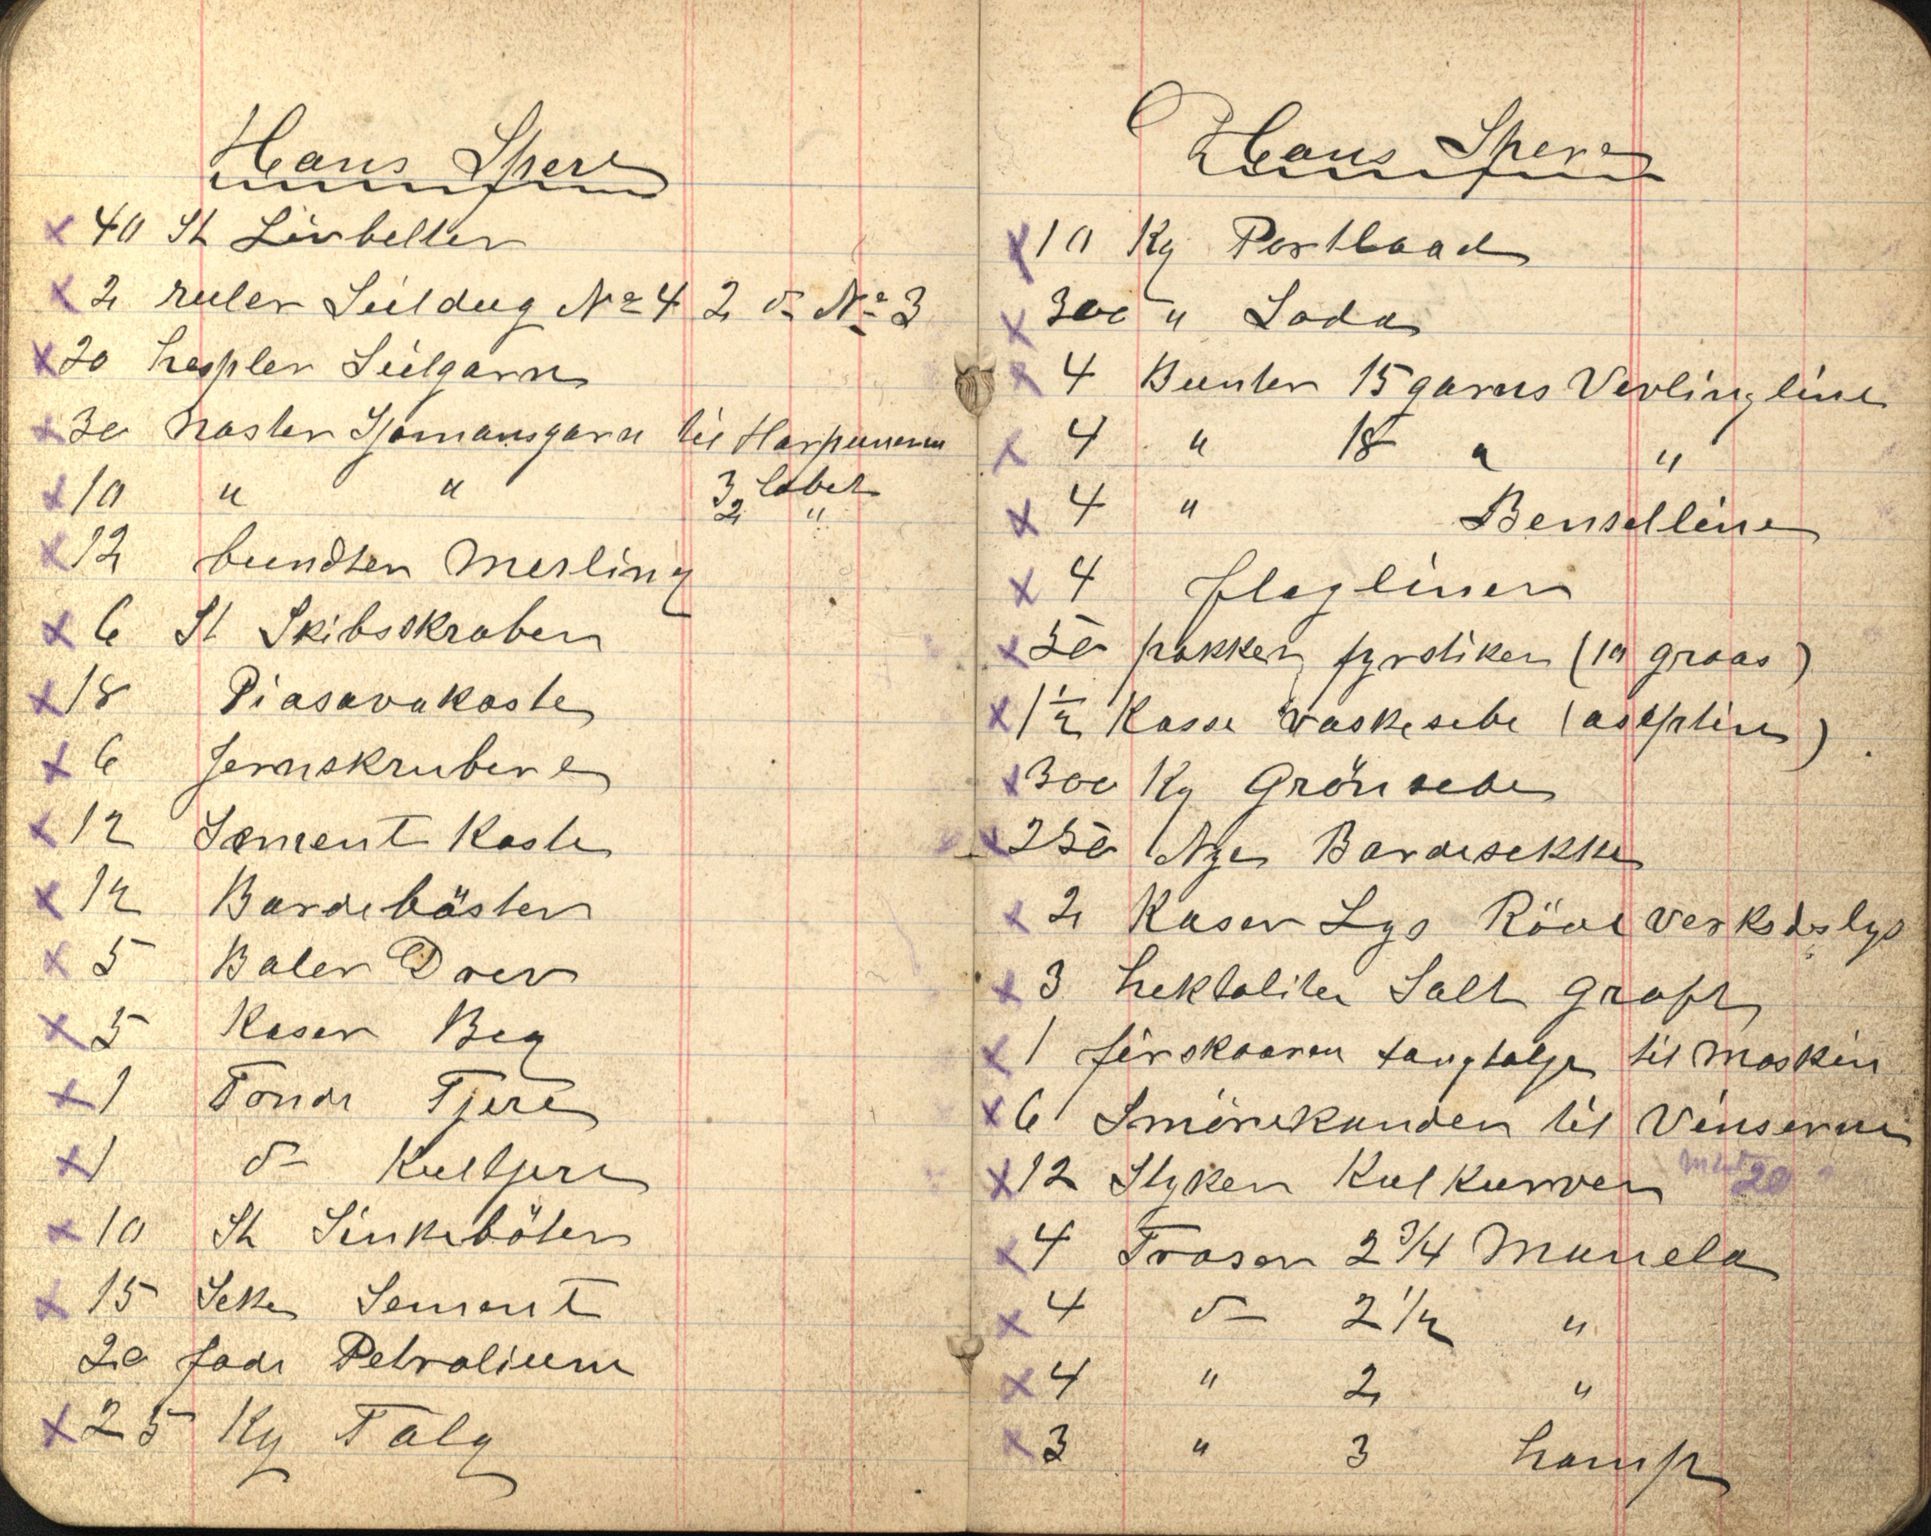 Hans Spere
x 40 St Livbelter
x 2 ruler Seildug No 4 2 do No 3
x 20 hespler Seilgarn
x 30 Nøster Sjømansgarn til Harpunerne
x 10 " " 3 løbet
2 "
x 12 bundter Merling
x 6 St Skibsskraber
x 18 Piasavakoste
x 6 Jernskrubere
x 12 Sement Koste
x 12 Bardebøster
x 5 Baler Drev
x 5 Kaser Beg
x 1 Tønde Tjere
x 1 do Kultjere
x 10 St Sinkebøter
x 15 Seke Sement
20 fade Petrolium
x 25 Kg Talg
Hans Spere
x 10 Kg Portlaad
x 300 " Soda
x 4 Bunter 15 garns Vevlingline
x 4 " 18 " "
x 4 " Benselline
x 4 flagliner
x 50 pakker fyrstiker (10 graas)
x 1½ Kasse vaskesebe (aseptin)
x 300 Kg Grönsebe
x 250 Nye Bardesekke
x 2 Kaser Lys Röve verkstedslys
x 3 hektoliter Salt groft
x 1 firskaaren taugtalje til Maskin
x 6 Smörekander til Vinserne
x 12 Styker Kulkurver 20
x 4 Troser 2 3/4 Manela
x 4 do 2 1/2 "
x 4 " 2 "
x 3 " 3 hamp